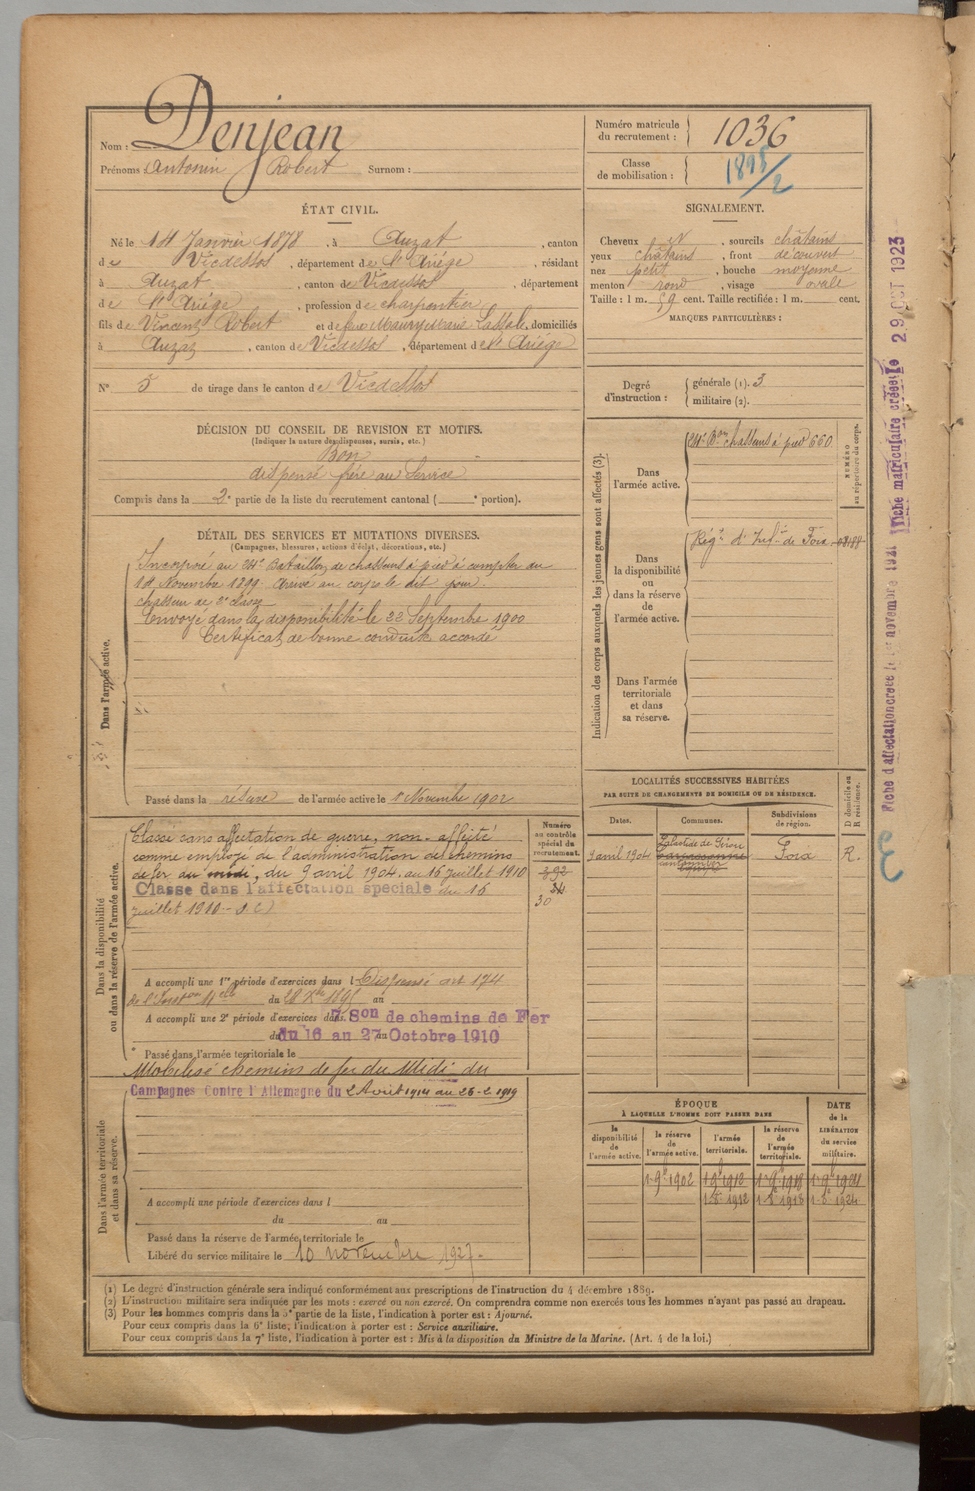 Nom : Denjean
Prénoms : Antonin Robert Surnom :
Numéro matricule du recrutement : 1036
Classe de mobilisation : 1895/2
ÉTAT CIVIL.
Né le 14 Janvier 1878, à Auzat, canton
de Vicdessos, département de l'Ariège, résidant
à Auzat, canton de Vicdessos, département
de l'Ariège, profession de charpentier
fils de Vincent Robert et de feue Maury Marie, domiciliés
à Auzat, canton de Vicdessos, département de l'Ariège
N° 5 de tirage dans le canton de Vicdessos
SIGNALEMENT.
Cheveux et, sourcils châtains
yeux châtains, front découvert
nez petit, bouche moyenne
menton rond, visage ovale
Taille : 1 m. 59 cent. Taille rectifiée : 1 m. cent.
MARQUES PARTICULIÈRES :
Degré d'instruction : générale (1). 3
militaire (2).
DÉCISION DU CONSEIL DE REVISION ET MOTIFS.
(Indiquer la nature des dispenses, sursis, etc.)
Bon
dispensé frère au Service
Compris dans la 2e partie de la liste du recrutement cantonal ( e portion).
DÉTAIL DES SERVICES ET MUTATIONS DIVERSES.
(Campagnes, blessures, actions d'éclat, décorations, etc.)
Dans l'armée active.
Incorporé au Bataillon de chasseurs à pied à compter du
14 Novembre 1899. Arrivé au corps le dit jour
chasseur de 2e classe
Envoyé dans la disponibilité le 22 Septembre 1900
Certificat de bonne conduite accordé
Passé dans la réserve de l'armée active le 1er Novembre 1902
Indication des corps auxquels les jeunes gens sont affectés (3).
Dans l'armée active.
Bon chasseurs à pied 660
NUMÉRO au répertoire du corps.
Dans la disponibilité ou dans la réserve de l'armée active.
Régt d'Infie de Foix
Dans l'armée territoriale et dans sa réserve.
LOCALITÉS SUCCESSIVES HABITÉES
PAR SUITE DE CHANGEMENTS DE DOMICILE OU DE RÉSIDENCE.
Dates. Communes. Subdivisions de région. D domicile ou R résidence.
9 avril 1904 Carcassonne Foix R.
Dans la disponibilité ou dans la réserve de l'armée active.
Numéro au contrôle spécial du recrutement.
Classé sans affectation de guerre, non-affecté
comme employé de l'administration des chemins
de fer du midi, du 9 avril 1904 au 16 juillet 1910
Classé dans l'affectation spéciale du 16
juillet 1910
392
34
30
A accompli une 1re période d'exercices dans l Dispensé art 174
de l'Inston du 28 Xbre 1895 au
A accompli une 2e période d'exercices dans 7 Son de chemins de Fer
du 16 au 27 Octobre 1910
Passé dans l'armée territoriale le
Mobilisé chemins de fer du Midi du
Dans l'armée territoriale et dans sa réserve.
Campagnes Contre l'Allemagne du 2 Août 1914 au 26-2-1919
A accompli une période d'exercices dans l
du au
Passé dans la réserve de l'armée territoriale le
Libéré du service militaire le 10 novembre 1927.
ÉPOQUE
À LAQUELLE L'HOMME DOIT PASSER DANS
la disponibilité de l'armée active. la réserve de l'armée active. l'armée territoriale. la réserve de l'armée territoriale.
DATE de la LIBÉRATION du service militaire.
1-9e 1902 1-9e 1912 1-9e 1918 1-9e 1924
1912 1918 1924
Fiche d'affectation créée le 1er novembre 1921 Fiche matriculaire créée le 29 OCT 1923
(1) Le degré d'instruction générale sera indiqué conformément aux prescriptions de l'instruction du 4 décembre 1889.
(2) L'instruction militaire sera indiquée par les mots : exercé ou non exercé. On comprendra comme non exercés tous les hommes n'ayant pas passé au drapeau.
(3) Pour les hommes compris dans la 5e partie de la liste, l'indication à porter est : Ajourné.
Pour ceux compris dans la 6e liste, l'indication à porter est : Service auxiliaire.
Pour ceux compris dans la 7e liste, l'indication à porter est : Mis à la disposition du Ministre de la Marine. (Art. 4 de la loi.)